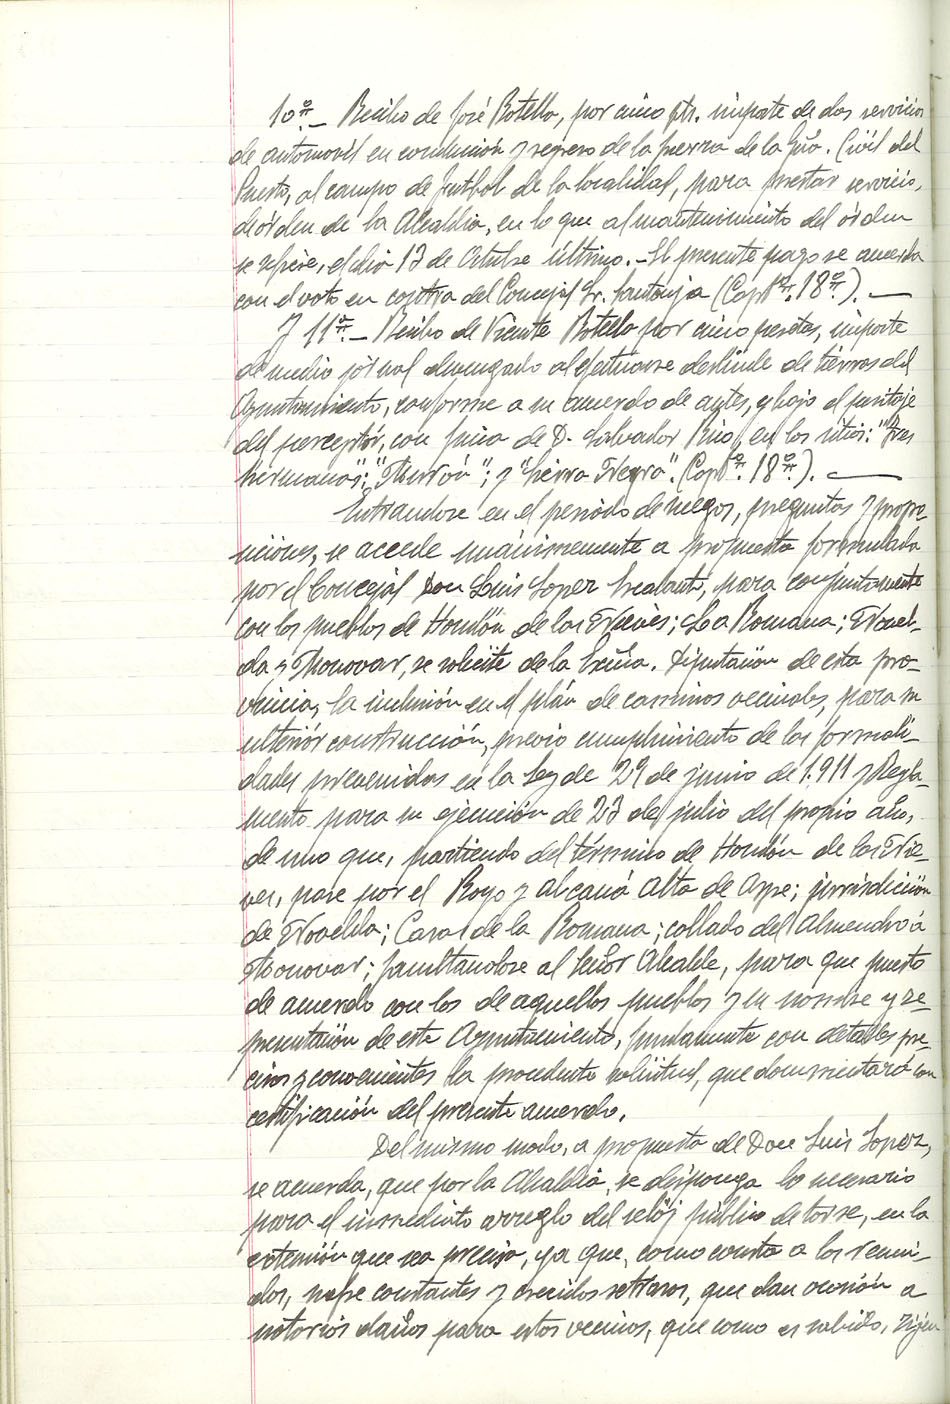 10º.- Recibo de José Botella, por cinco pts. importe de dos servicios
de automovil en conducción y regreso de la fuerza de la Gria. Civil del
Puesto, al campo de futbol de la localidad, para prestar servicio,
de órden de la Alcaldia, en lo que al mantenimiento del órden
se refiere, el dia 13 de Octubre último.- El presente pago se acuerda
con el voto en contra del Concejal Sr. Santonja (Capto. 18º.). —
Y 11º.- Recibo de Vicente Botella por cinco pesetas, importe
de medio jornal devengado al efectuarse deslinde de tierras del
Ayuntamiento, conforme a su acuerdo de antes, y bajo el peritaje
del perceptór, con finca de D. Salvador Rico, en los sitios: "Tres
hermanos"; "Murrón"; y "Sierra Negra". (Capto. 18º.). —
Entrandose en el periódo de ruegos, preguntas y propo-
siciones, se accede unánimemente a propuesta formulada
por el Concejal Don Luis Lopez, para conjuntamente
con los pueblos de Hondón de las Nieves; La Romana; Novel-
da y Monovar, se solicite de la Excma. Diputación de esta pro-
vincia, la inclusión en el plán de caminos vecinales, para su
ulteriór construcción, previo cumplimiento de las formali-
dades prevenidas en la Ley de 29 de junio de 1.911 y Regla-
mento para su ejecución de 23 de julio del propio año,
de uno que, partiendo del término de Hondón de las Nie-
ves, pase por el Rogo y Alcaná Alta de Aspe; jurisdicción
de Novelda; Casas de la Romana; collado del Almendro á
Monovar; facultandose al Señor Alcalde, para que puesto
de acuerdo con los de aquellos pueblos y en nombre y re-
presentación de este Ayuntamiento, fundamente con detalles pre-
cisos y convenientes la procedente solicitud, que documentará con
certificación del presente acuerdo.
Del mismo modo, a propuesta de Don Luis Lopez,
se acuerda, que por la Alcaldia, se disponga lo necesario
para el inmediato arreglo del relój público de torre, en la
extensión que sea precisa, ya que, como consta a los reuni-
dos, sufre constantes y crecidos retrasos, que dan ocasión a
notorios daños para estos vecinos, que como es sabido, rijen